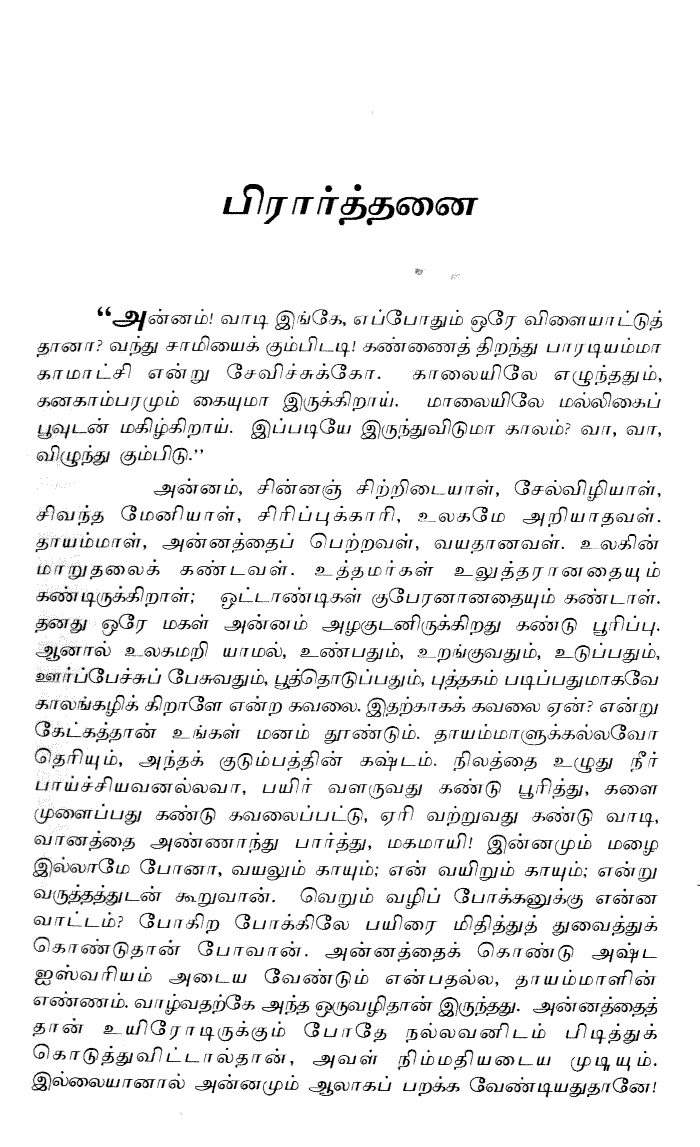 பிரார்த்தனை
“அன்னம்! வாடி இங்கே, எப்போதும் ஒரே விளையாட்டுத்
தானா? வந்து சாமியைக் கும்பிடடி! கண்ணைத் திறந்து பாரடியம்மா
காமாட்சி என்று சேவிச்சுக்கோ. காலையிலே எழுந்ததும்,
கனகாம்பரமும் கையுமா இருக்கிறாய். மாலையிலே மல்லிகைப்
பூவுடன் மகிழ்கிறாய். இப்படியே இருந்துவிடுமா காலம்? வா, வா,
விழுந்து கும்பிடு.”
அன்னம், சின்னஞ் சிற்றிடையாள், சேல்விழியாள்,
சிவந்த மேனியாள், சிரிப்புக்காரி, உலகமே அறியாதவள்.
தாயம்மாள், அன்னத்தைப் பெற்றவள், வயதானவள். உலகின்
மாறுதலைக் கண்டவள். உத்தமர்கள் உலுத்தரானதையும்
கண்டிருக்கிறாள்; ஒட்டாண்டிகள் குபேரனானதையும் கண்டாள்.
தனது ஒரே மகள் அன்னம் அழகுடனிருக்கிறது கண்டு பூரிப்பு.
ஆனால் உலகமறி யாமல், உண்பதும், உறங்குவதும், உடுப்பதும்,
ஊர்ப்பேச்சுப் பேசுவதும், பூத்தொடுப்பதும், புத்தகம் படிப்பதுமாகவே
காலங்கழிக் கிறாளே என்ற கவலை. இதற்காகக் கவலை ஏன்? என்று
கேட்கத்தான் உங்கள் மனம் தூண்டும். தாயம்மாளுக்கல்லவோ
தெரியும், அந்தக் குடும்பத்தின் கஷ்டம். நிலத்தை உழுது நீர்
பாய்ச்சியவனல்லவா, பயிர் வளருவது கண்டு பூரித்து, களை
முளைப்பது கண்டு கவலைப்பட்டு, ஏரி வற்றுவது கண்டு வாடி,
வானத்தை அண்ணாந்து பார்த்து, மகமாயி! இன்னமும் மழை
இல்லாமே போனா, வயலும் காயும்; என் வயிறும் காயும்; என்று
வருத்தத்துடன் கூறுவான். வெறும் வழிப் போக்கனுக்கு என்ன
வாட்டம்? போகிற போக்கிலே பயிரை மிதித்துத் துவைத்துக்
கொண்டுதான் போவான். அன்னத்தைக் கொண்டு அஷ்ட
ஐஸ்வரியம் அடைய வேண்டும் என்பதல்ல, தாயம்மாளின்
எண்ணம். வாழ்வதற்கே அந்த ஒருவழிதான் இருந்தது. அன்னத்தைத்
தான் உயிரோடிருக்கும் போதே நல்லவனிடம் பிடித்துக்
கொடுத்துவிட்டால்தான், அவள் நிம்மதியடைய முடியும்.
இல்லையானால் அன்னமும் ஆலாகப் பறக்க வேண்டியதுதானே!